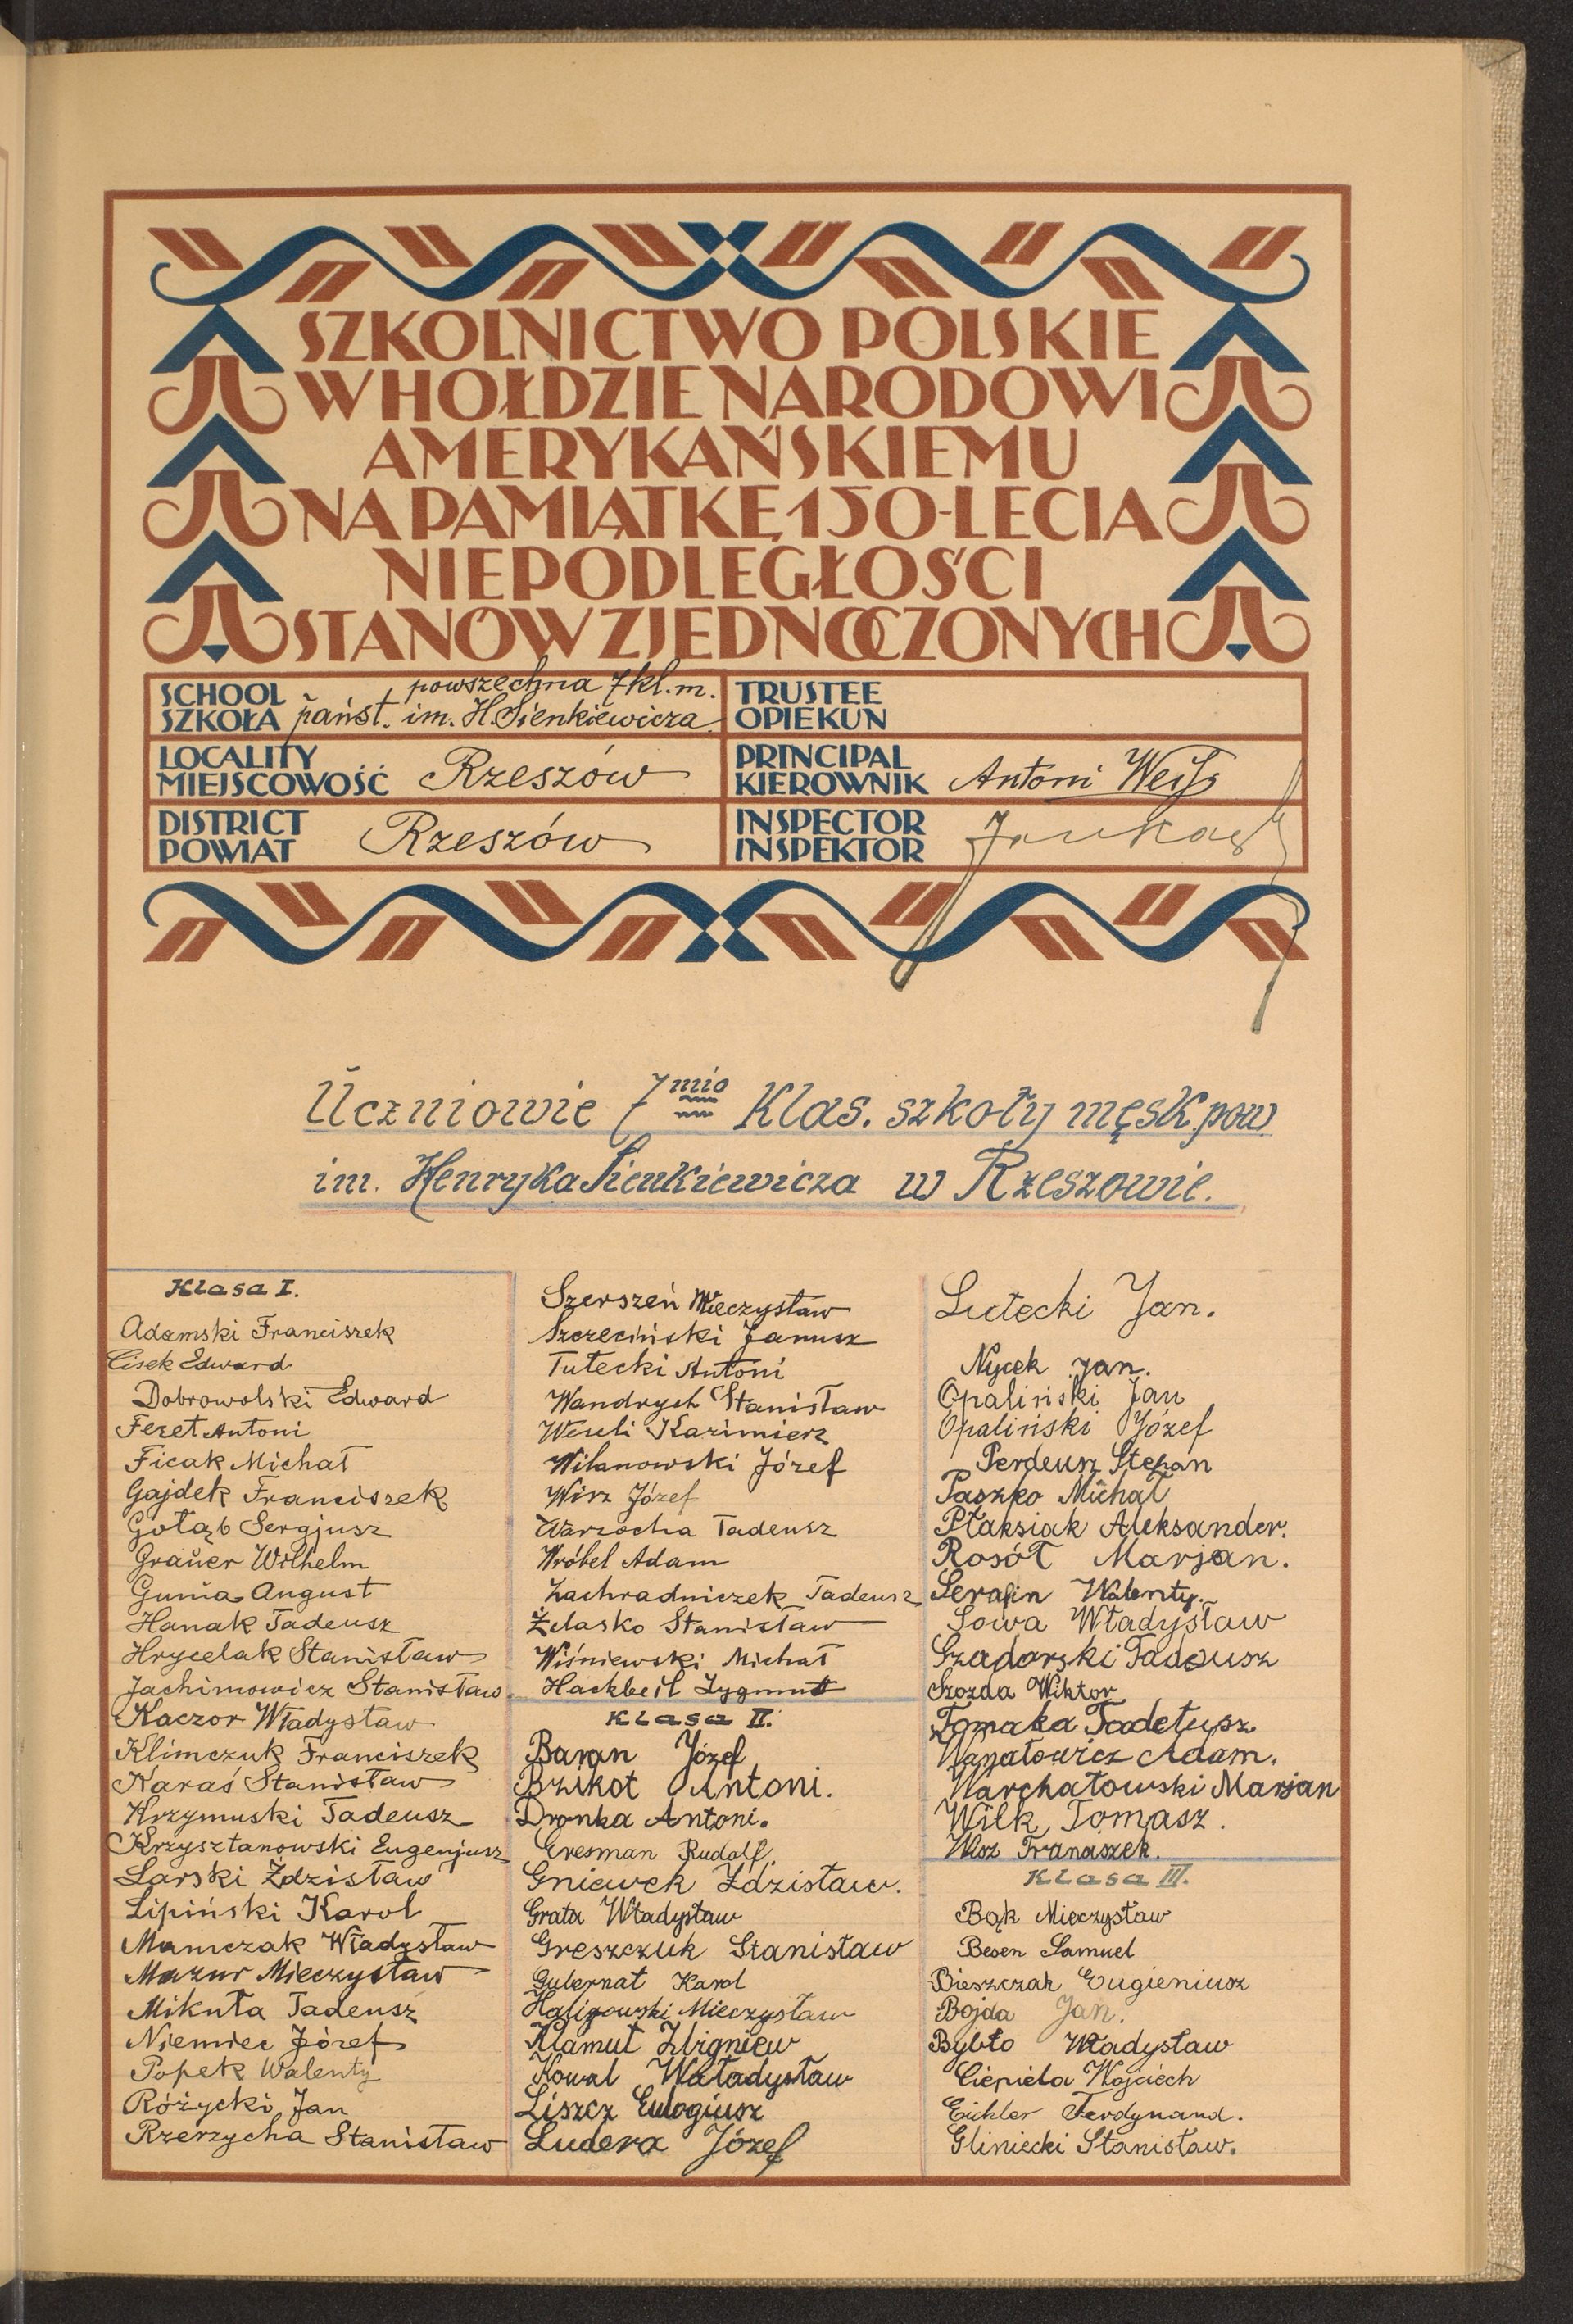 SZKOLNICTWO POLSKIE
W HOŁDZIE NARODOWI
AMERYKAŃSKIEMU
NA PAMIĄTKĘ 150-LECIA
NIEPODLEGŁOŚCI
STANÓW ZJEDNOCZONYCH
SCHOOL
SZKOŁA
powszechna 7 kl. m.
państ. im. H. Sienkiewicza
TRUSTEE
OPIEKUN
LOCALITY
MIEJSCOWOŚĆ Rzeszów
PRINCIPAL
KIEROWNIK Antoni Weiss
DISTRICT
POWIAT Rzeszów
INSPECTOR
INSPEKTOR
Uczniowie 7mio Klas. szkoły męsk. pow
im. Henryka Sienkiewicza w Rzeszowie.
Klasa I.
Adamski Franciszek
Cisek Edward
Dobrowolski Edward
Feret Antoni
Ficak Michał
Gajdek Franciszek
Gołąb Sergjusz
Graüer Wilhelm
Gunia August
Hanak Tadeusz
Hrycelak Stanisław
Jachimowicz Stanisław
Kaczor Władysław
Klimczuk Franciszek
Karaś Stanisław
Krzymuski Tadeusz
Krzysztanowski Eugenjusz
Larski Zdzisław
Lipiński Karol
Mamczak Władysław
Mazur Mieczysław
Mikuła Tadeusz
Niemiec Józef
Popek Walenty
Różycki Jan
Rzerzycha Stanisław
Szerszeń Mieczysław
Szczeciński Janusz
Tutecki Antoni
Wandrych Stanisław
Weseli Kazimierz
Wilanowski Józef
Wirz Józef
Warzocha Tadeusz
Wróbel Adam
Zachradniczek Tadeusz
Żelasko Stanisław
Wiśniewski Michał
Hackbeil Zygmut
Klasa II.
Baran Józef
Brzikot Antoni.
Dronka Antoni.
Eresman Rudolf.
Gniewek Zdzisław.
Grata Władysław
Greszczuk Stanisław
Gubernat Karol
Haligowski Mieczysław
Klamut Zbigniew
Kowal Waładysław
Liszcz Eulogiusz
Ludera Józef
Lutecki Jan.
Nycek Jan.
Opaliński Jan
Opaliński Józef
Perdeusz Stepan
Paszko Michał
Ptaksiak Aleksander.
Rosół Marjan.
Serafin Walenty.
Sowa Władysław
Szadarski Tadeusz
Szozda Wiktor
Tomaka Tadeusz
Adam.
Warchałowski Marjan
Wilk Tomasz.
Wosz Franciszek.
Klasa III.
Bąk Mieczysław
Besen Samuel
Bieszczak Eugieniusz
Bojda Jan.
Bybło Władysław
Ciepiela Wojciech
Eichler Ferdynand.
Gliniecki Stanisław.